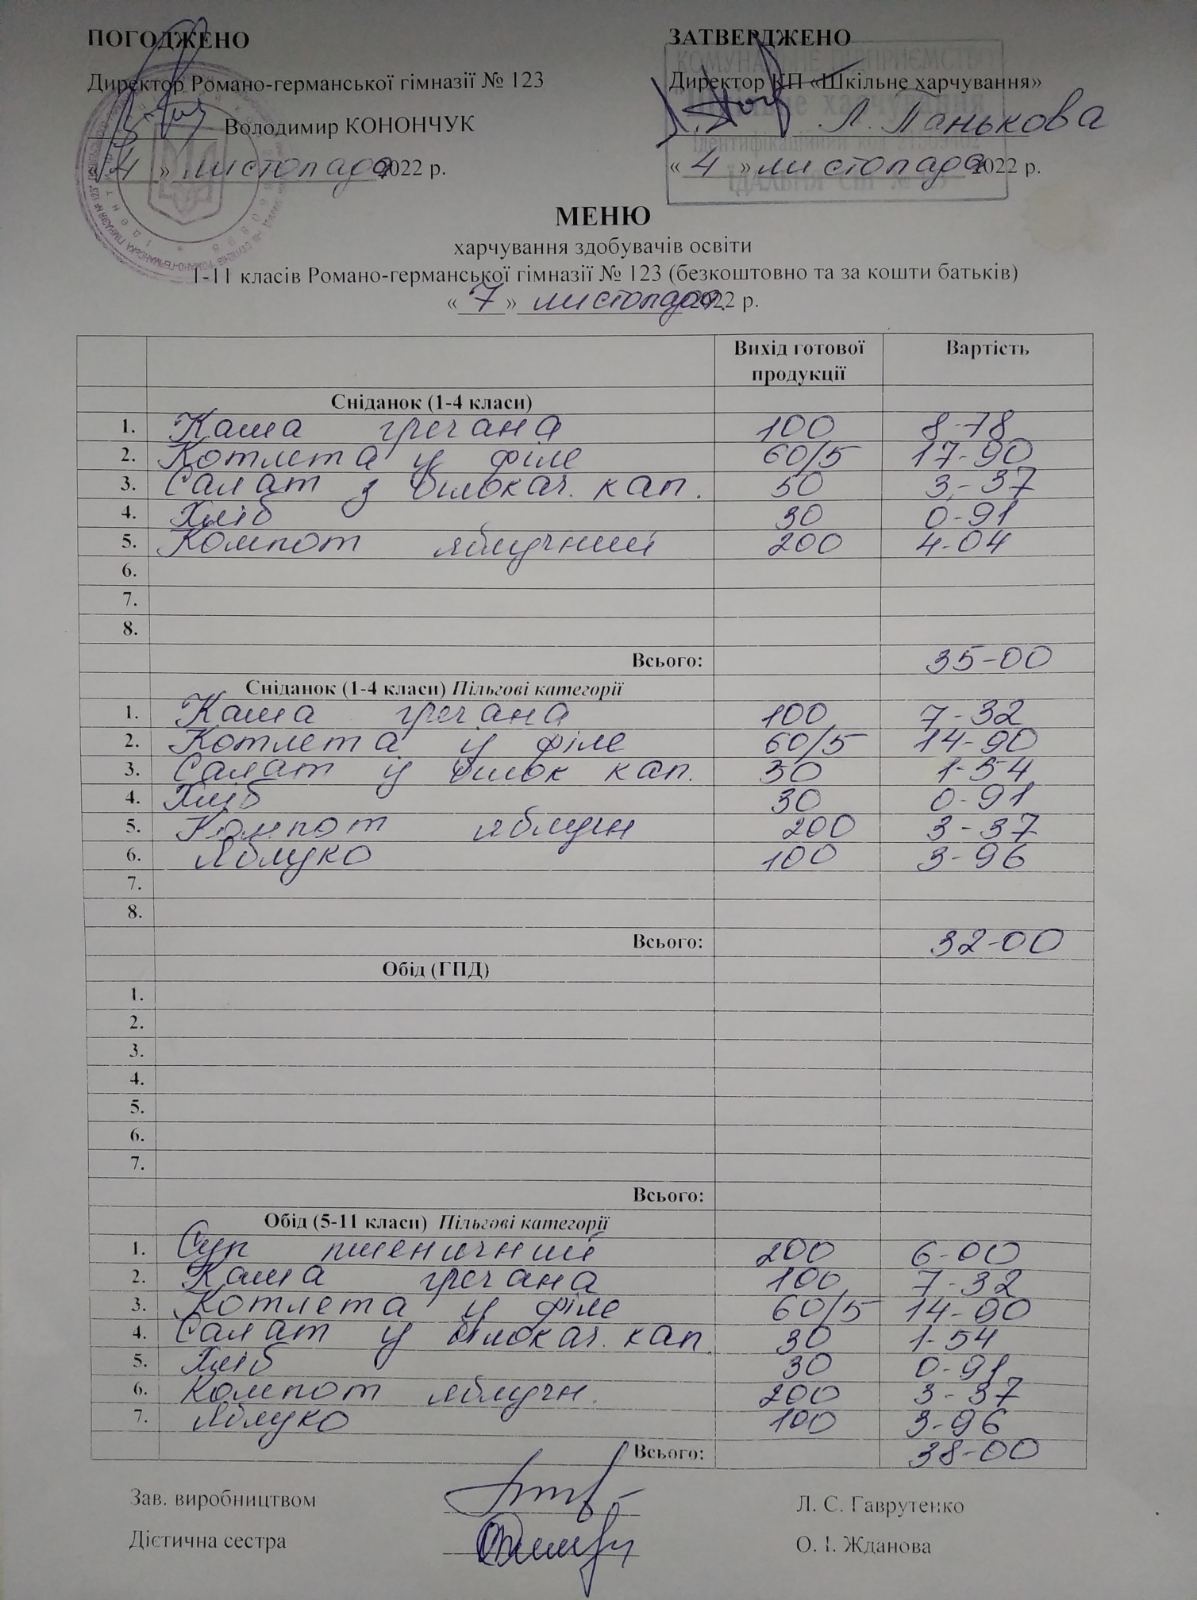 ПОГОДЖЕНО
Директор Романо-германської гімназії № 123
Володимир КОНОНЧУК
« 4 » листопада 2022 р.
ЗАТВЕРДЖЕНО
Директор КП «Шкільне харчування»
Л. Панькова
« 4 » листопада 2022 р.
КОМУНАЛЬНЕ ПІДПРИЄМСТВО
Шкільне харчування
Ідентифікаційний код
ЇДАЛЬНЯ
МЕНЮ
харчування здобувачів освіти
1-11 класів Романо-германської гімназії № 123 (безкоштовно та за кошти батьків)
« 7 » листопада 2022 р.
Вихід готової продукції Вартість
Сніданок (1-4 класи)
1. Каша гречана 100 8-78
2. Котлета із філе 60/5 17-90
3. Салат з білокач. кап. 50 3-37
4. Хліб 30 0-91
5. Компот яблучний 200 4-04
6.
7.
8.
Всього: 35-00
Сніданок (1-4 класи) Пільгові категорії
1. Каша гречана 100 7-32
2. Котлета із філе 60/5 14-90
3. Салат із білок кап. 30 1-54
4. Хліб 30 0-91
5. Компот яблучн 200 3-37
6. Яблуко 100 3-96
7.
8.
Всього: 32-00
Обід (ГПД)
1.
2.
3.
4.
5.
6.
7.
Всього:
Обід (5-11 класи) Пільгові категорії
1. Суп пшеничний 200 6-00
2. Каша гречана 100 7-32
3. Котлета із філе 60/5 14-90
4. Салат із білокач. кап. 30 1-54
5. Хліб 30 0-91
6. Компот яблучн. 200 3-37
7. Яблуко 100 3-96
Всього: 38-00
Зав. виробництвом Л. С. Гаврутенко
Дієтична сестра О. І. Жданова